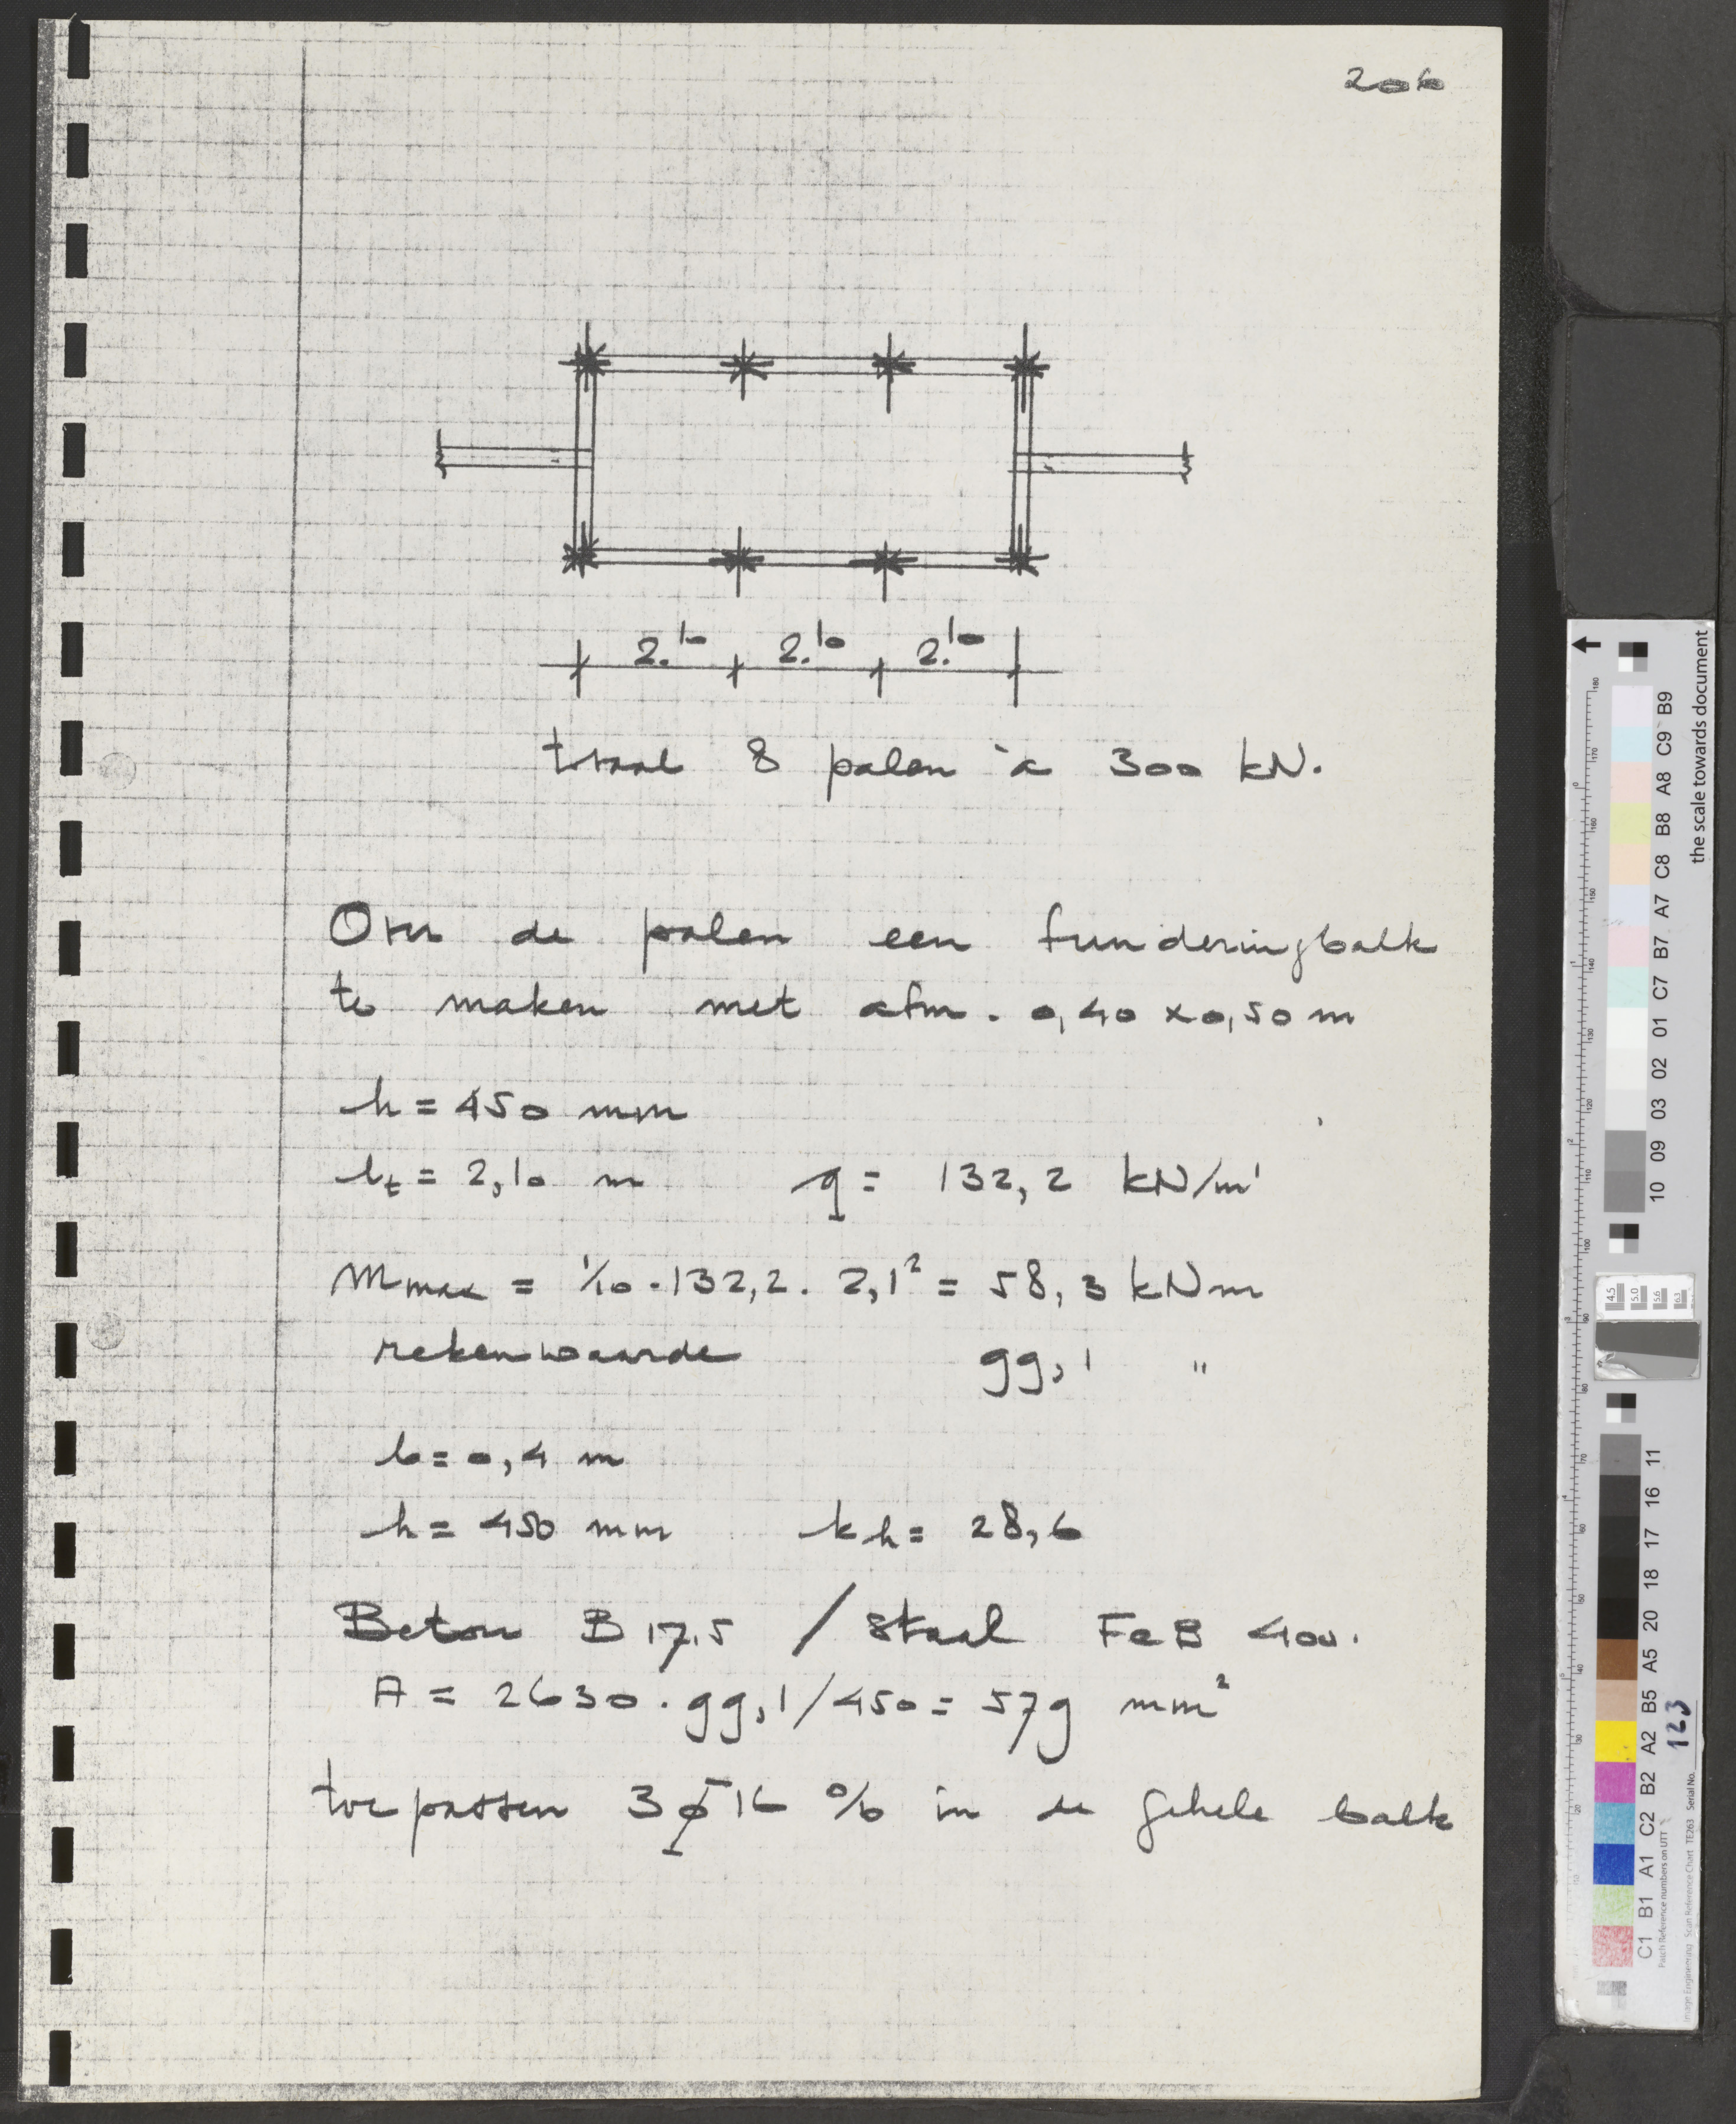 206
2.10 2.10 2.10
totaal 8 palen à 300 kN.
Over de palen een funderingbalk
te maken met afm. 0,40 x 0,50 m
h = 450 mm
lt = 2,10 m q = 132,2 kN/m'
Mmax = 1/10 . 132,2 . 2,1² = 58,3 kNm
rekenwaarde 99,1 "
b = 0,4 m
h = 450 mm kh = 28,6
Beton B 17,5 / Staal FeB 400.
A = 2630 . 99,1/450 = 579 mm²
toepassen 3 ø 16 o/b in de gehele balk
the scale towards document
B9 C9 A8 B8 C8 A7 B7 C7 01 02 03 09 10
11 16 17 18 20 A5 B5 A2 B2 C2 A1 B1 C1
Patch Reference numbers on UTT
Image Engineering Scan Reference Chart TE263 Serial No. 123